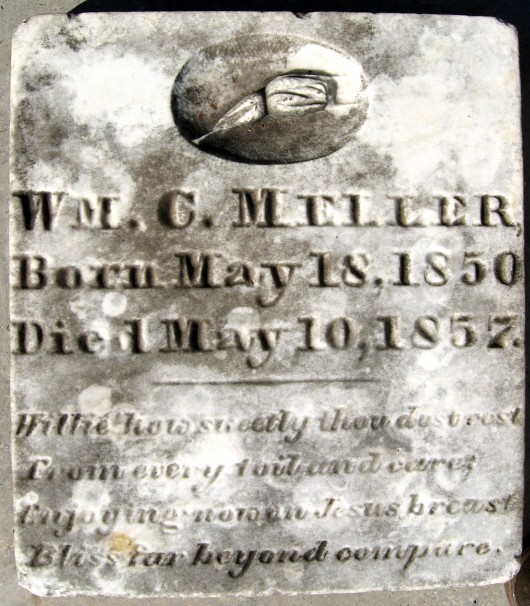 WM. C. MELLER,
Born May 18, 1850
Died May 10, 1857.
Willie how sweetly thou dost rest
From every toil and care;
Enjoying now on Jesus breast
Bliss far beyond compare.